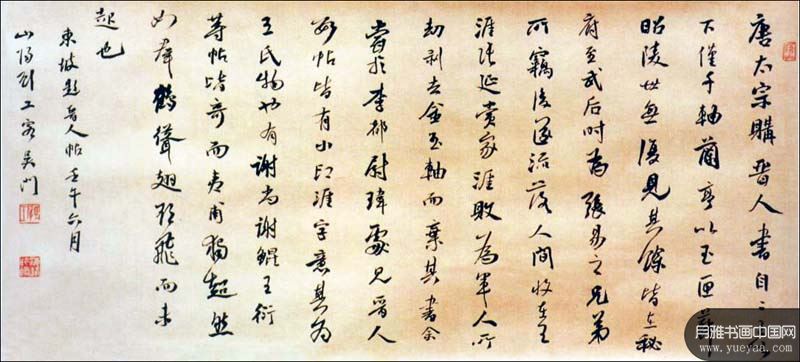 唐太宗購晉人書自二王
下僅千軸蘭亭以玉匣葬
昭陵世無復見其餘皆在秘
府至武后時為張易之兄弟
所竊後遂流落人間收在王
涯張延賞家涯敗為軍人所
劫剝去金玉軸而棄其書余
嘗於李都尉瑋處見晉人
數帖皆有小印涯字意其為
王氏物也有謝尚謝鯤王衍
等帖皆奇而夷甫獨超然
如群鶴聳翅欲飛而未
起也
東坡題晉人帖壬午六月
山陽劉工客吳門
月雅书画中国网
www.yueyaa.com